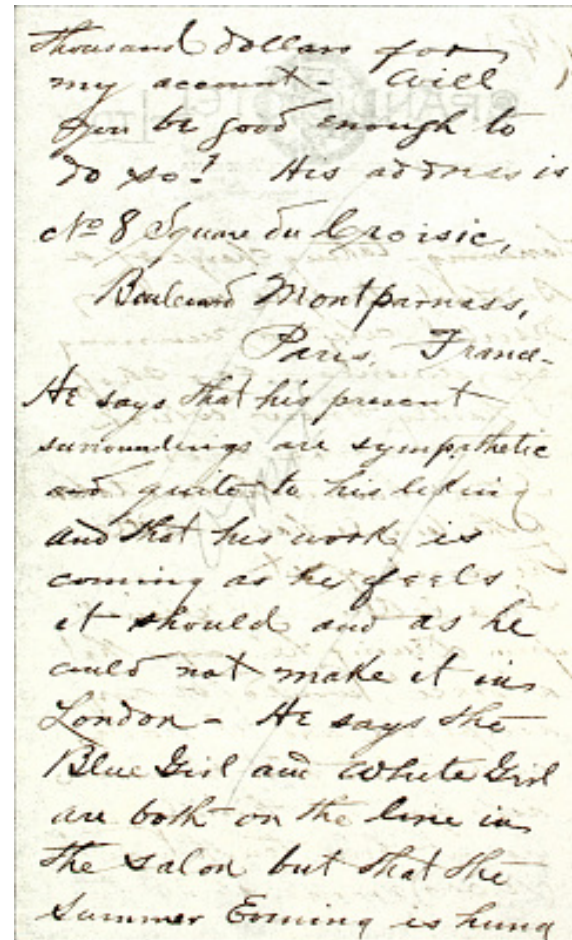 thousand dollars for
my account - Will
you be good enough to
do so? His address is
No 8 Square du Croisic,
Boulevard Montparnass,
Paris, France -
He says that his present
surroundings are sympathetic
and quite to his liking
and that his work is
coming as he feels
it should and as he
could not make it in
London - He says the
Blue Girl and White Girl
are both on the line in
the Salon but that the
Summer Evening is hung